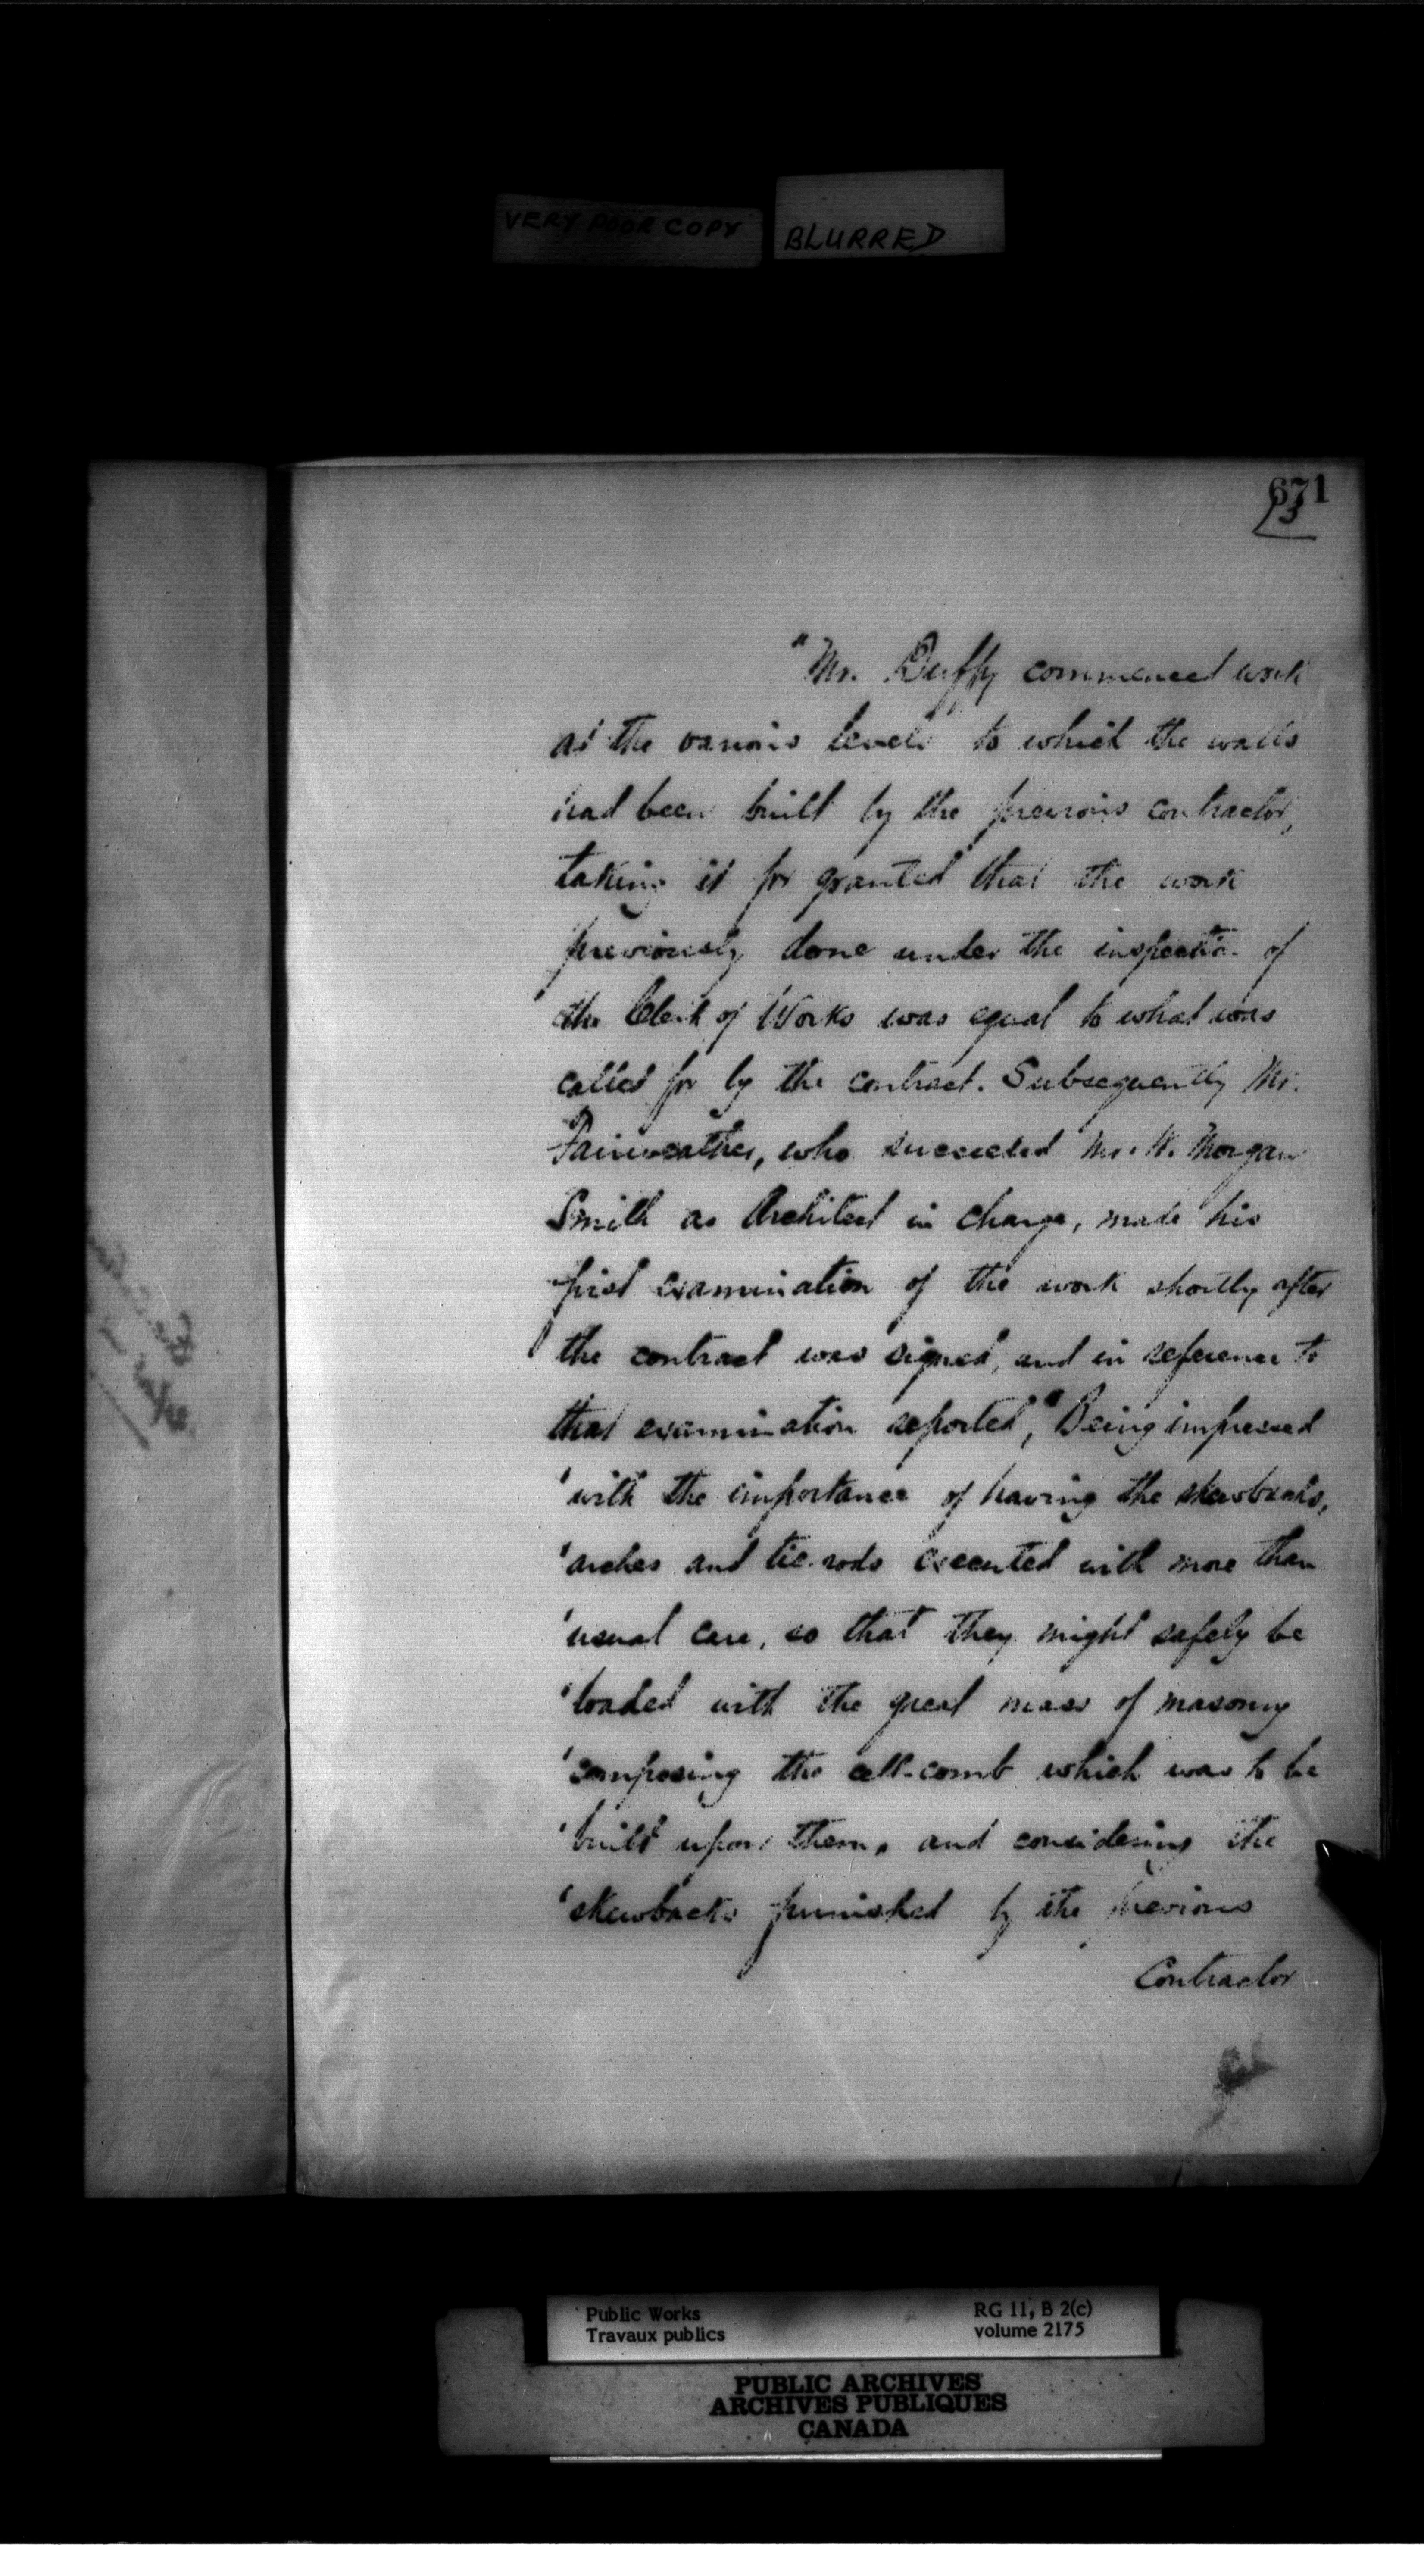 VERY POOR COPY
BLURRED
671
13
"Mr. Duffy commenced work
at the various levels to which the walls
had been built by the previous contractor,
taking it for granted that the work
previously done under the inspection of
the Clerk of Works was equal to what was
called for by the contract. Subsequently Mr.
Fairweather, who succeeded Mr. W. Morgan
Smith as Architect in charge, made his
first examination of the work shortly after
the contract was signed, and in reference to
that examination reported, "Being impressed
'with the importance of having the skewbacks,
'arches and tie-rods executed with more than
'usual care, so that they might safely be
'loaded with the great mass of masonry
'composing the cell-comb which was to be
'built upon them, and considering the
'skewbacks furnished by the previous
Contractor
Public Works
Travaux publics
RG 11, B 2(c)
volume 2175
PUBLIC ARCHIVES
ARCHIVES PUBLIQUES
CANADA